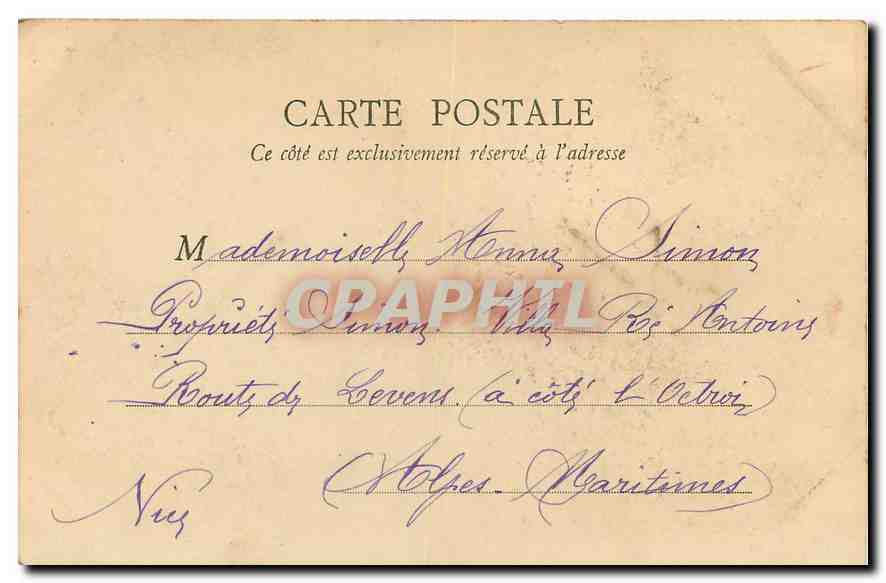 CARTE POSTALE
Ce côté est exclusivement réservé à l'adresse
Mademoiselle Anna Simon
CPAPHIL
Propriété Simon. Villa Ré Antoine
Route de Levens (à côté l'Octroi)
Nice (Alpes-Maritimes)